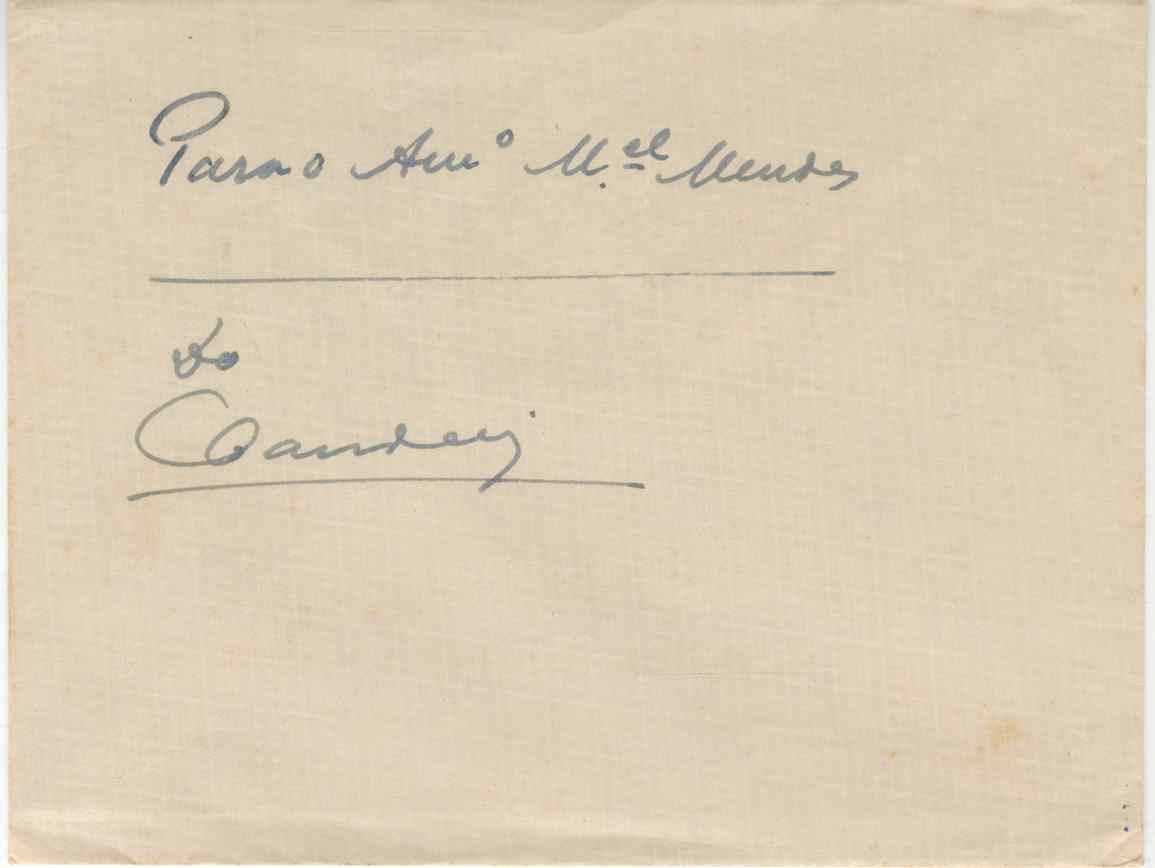 Para o Am.º M.el Mendes
do